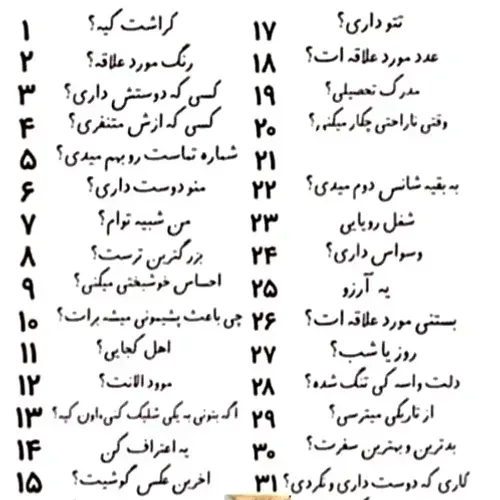 ۱ کراشت کیه؟
۲ رنگ مورد علاقه؟
۳ کسی که دوستش داری؟
۴ کسی که ازش متنفری؟
۵ شماره تماست رو بهم میدی؟
۶ منو دوست داری؟
۷ من شبیه توام؟
۸ بزرگترین ترست؟
۹ احساس خوشبختی میکنی؟
۱۰ چی باعث پشیمونی میشه برات؟
۱۱ اهل کجایی؟
۱۲ موود الانت؟
۱۳ اگه بتونی به یکی شلیک کنی،اون کیه؟
۱۴ یه اعتراف کن
۱۵ اخرین عکس گوشیت؟
۱۷ تتو داری؟
۱۸ عدد مورد علاقه ات؟
۱۹ مدرک تحصیلی؟
۲۰ وقتی ناراحتی چکار میکنی؟
۲۱
۲۲ به بقیه شانس دوم میدی؟
۲۳ شغل رویایی
۲۴ وسواس داری؟
۲۵ یه آرزو
۲۶ بستنی مورد علاقه ات؟
۲۷ روز یا شب؟
۲۸ دلت واسه کی تنگ شده؟
۲۹ از تاریکی میترسی؟
۳۰ بدترین و بهترین سفرت؟
۳۱ کاری که دوست داری و نکردی؟